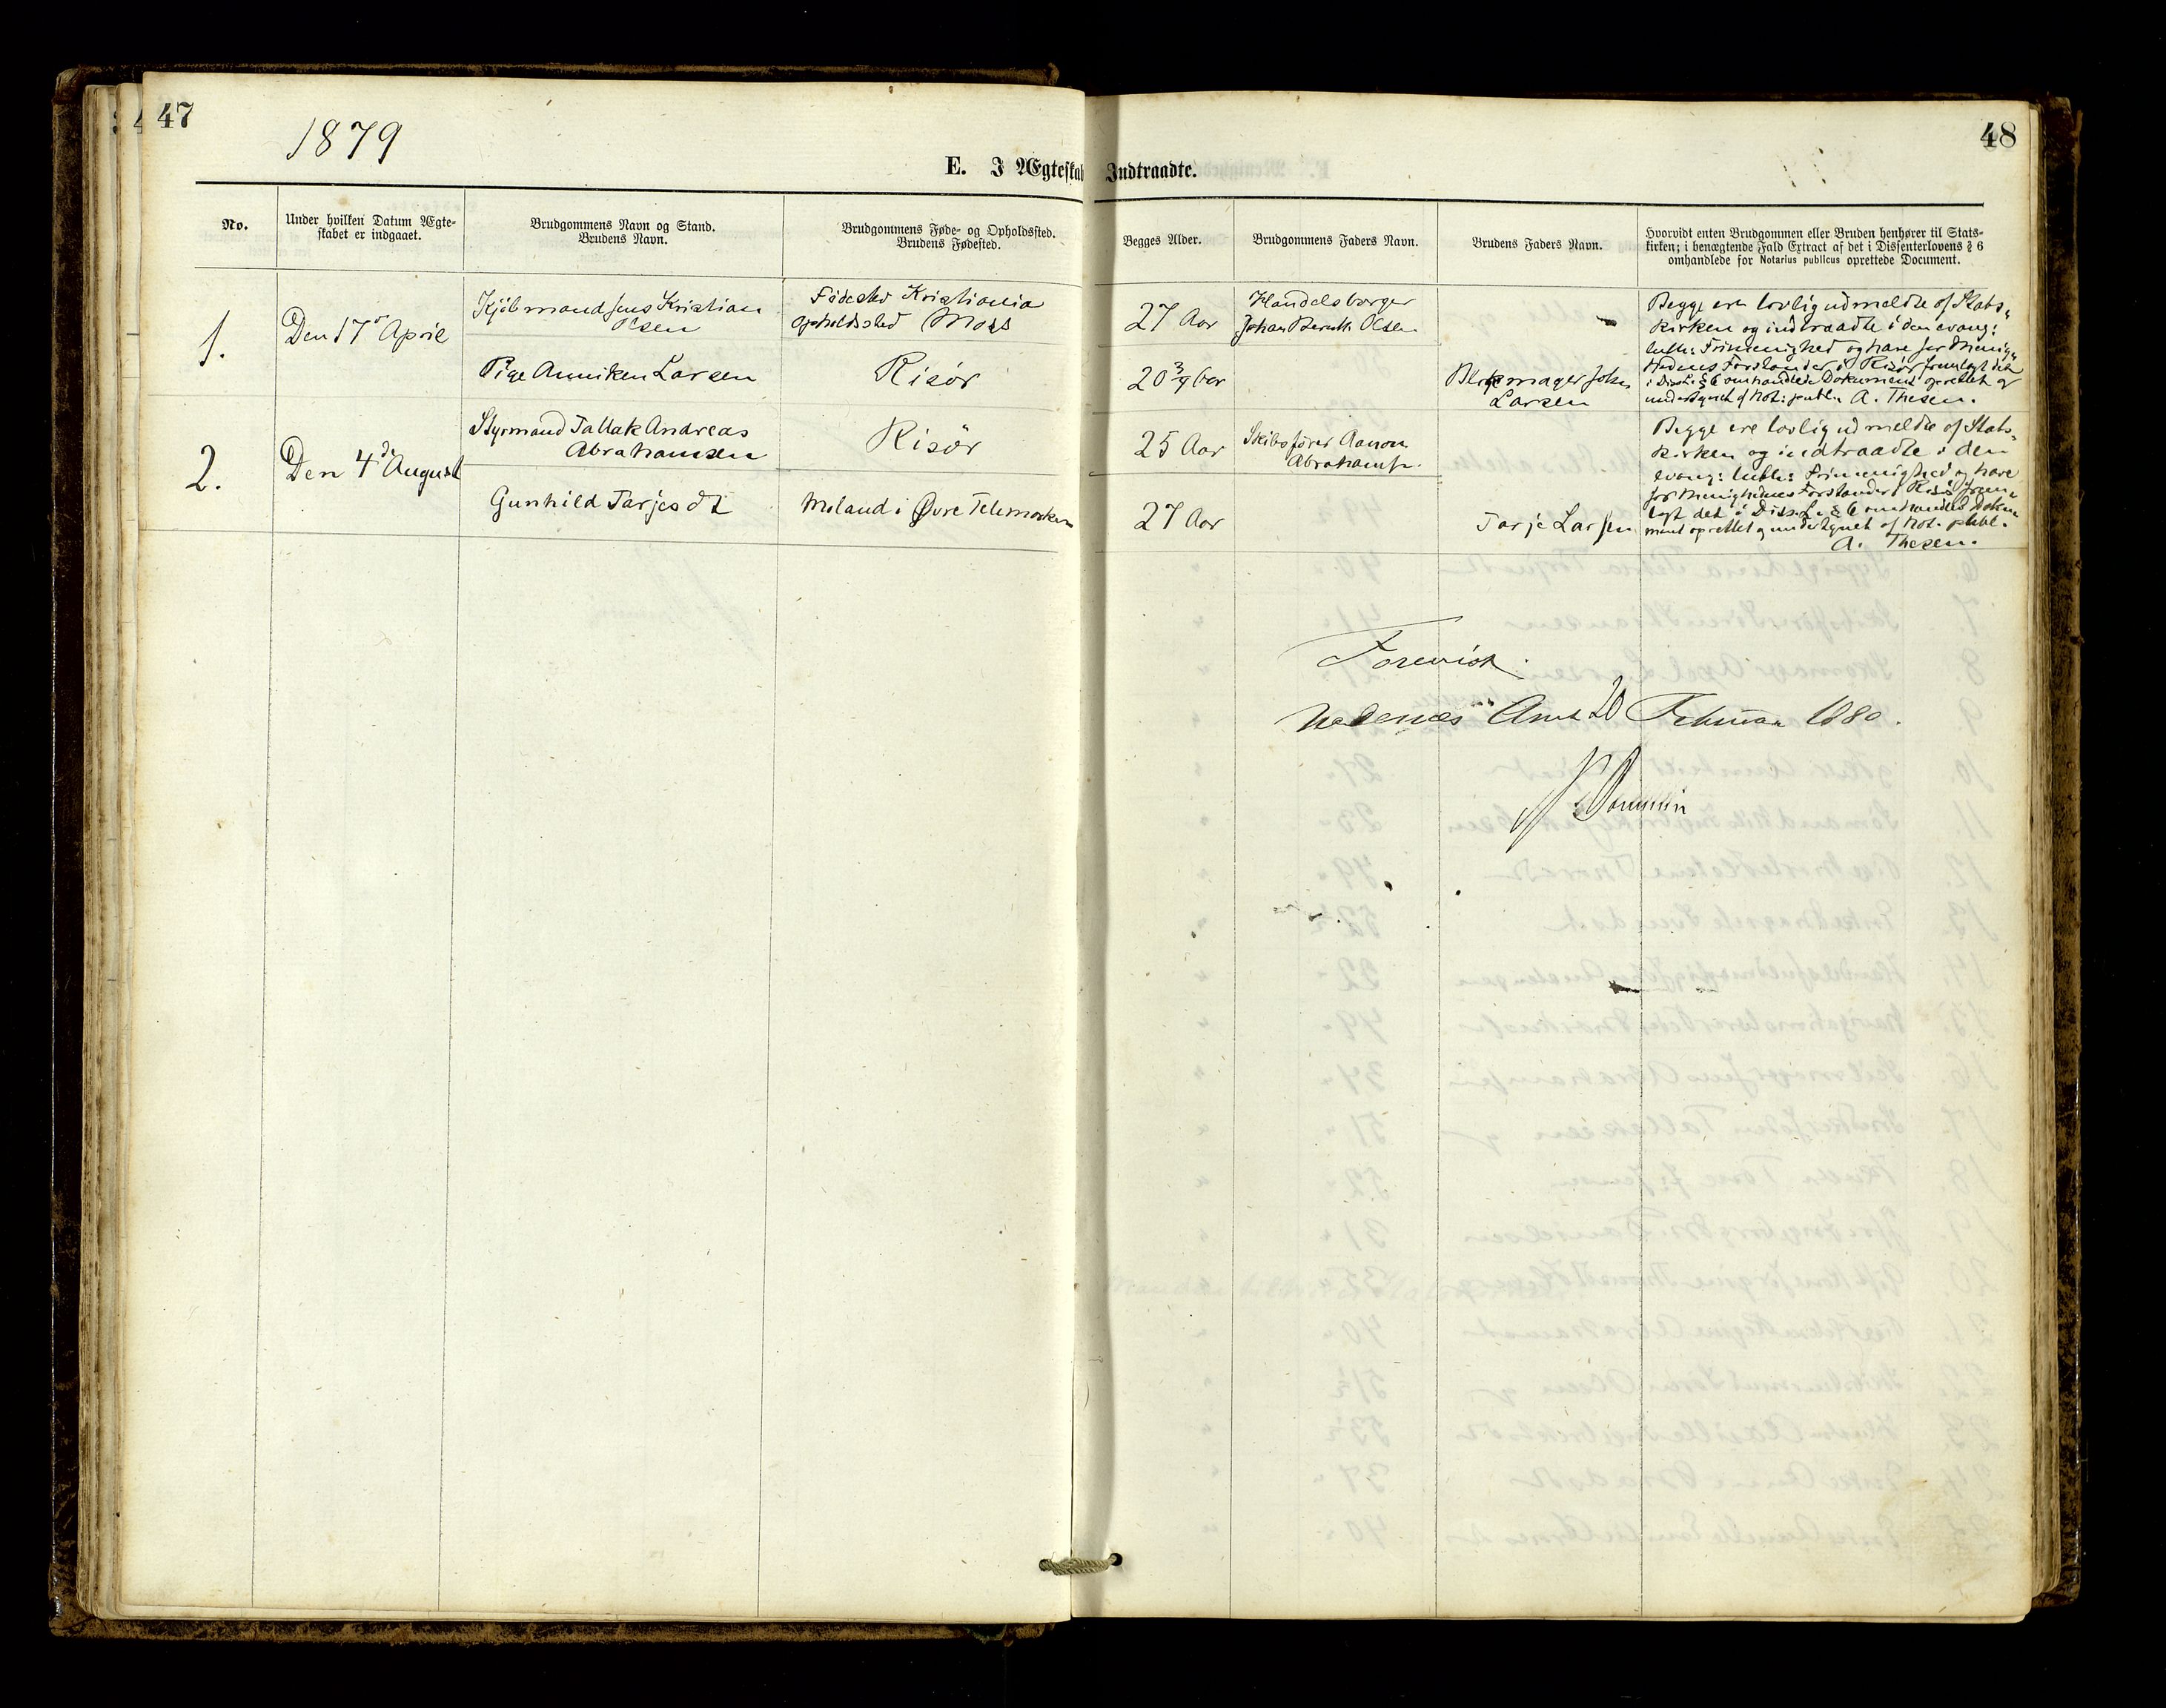 47
48
1879
E. I Ægteskab Indtraadte.
No.
Under hvilken Datum Ægte-
skabet er indgaaet.
Brudgommens Navn og Stand.
Brudens Navn.
Brudgommens Føde- og Opholdssted.
Brudens Fødested.
Begges Alder.
Brudgommens Faders Navn.
Brudens Faders Navn.
Hvorvidt enten Brudgommen eller Bruden henhører til Stats-
kirken; i benægtende Fald Extract af det i Dissenterlovens § 6
omhandlede for Notarius publicus oprettede Document.
1.
Den 17 April
Kjöbmand Jens Kristian
Olsen
Födested Kristiania
Opholdssted Moss
27 Aar
Handelsborger
Johan Olsen
Begge ere lovlig udmeldte af Stats-
kirken og indtraadte i den evang:
luth: Frimenighed og have for Menig-
hedens Forstander i Risör fremlagt det
i Diss.L. § 6 omhandlede Dokument oprettet og
undertegnet af Not: publ. A. Thesen.
Pige Anniken Larsen
Risör
20 3/9 Aar
Blokmager John
Larsen
2.
Den 4de August
Styrmand Tallak Andreas
Abrahamsen
Risör
25 Aar
Skibsförer Aanon
Abrahams.
Begge ere lovlig udmeldte af Stats-
kirken og indtraadte i den
evang: luth: Frimenighed og have
for Menighedens Forstander i Risör frem-
lagt det i Diss.L. § 6 omhandlede Doku-
ment oprettet og undertegnet af Not. publ.
A. Thesen.
Gunhild Tarjesdt
Moland i Øvre Telemarken
27 Aar
Tarje Larsen
Forevist
Nedenæs Amt 20 Februar 1880.